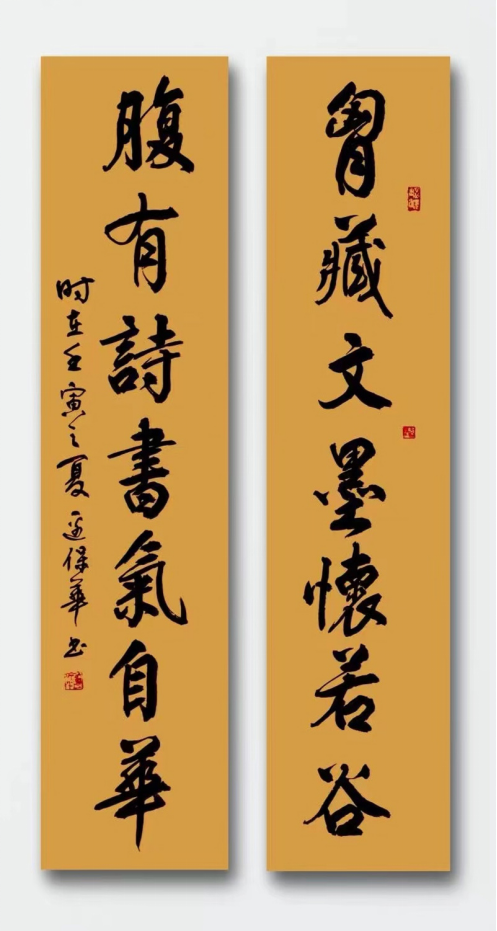 胷藏文墨懷若谷
腹有詩書氣自華
时在壬寅之夏 保華书